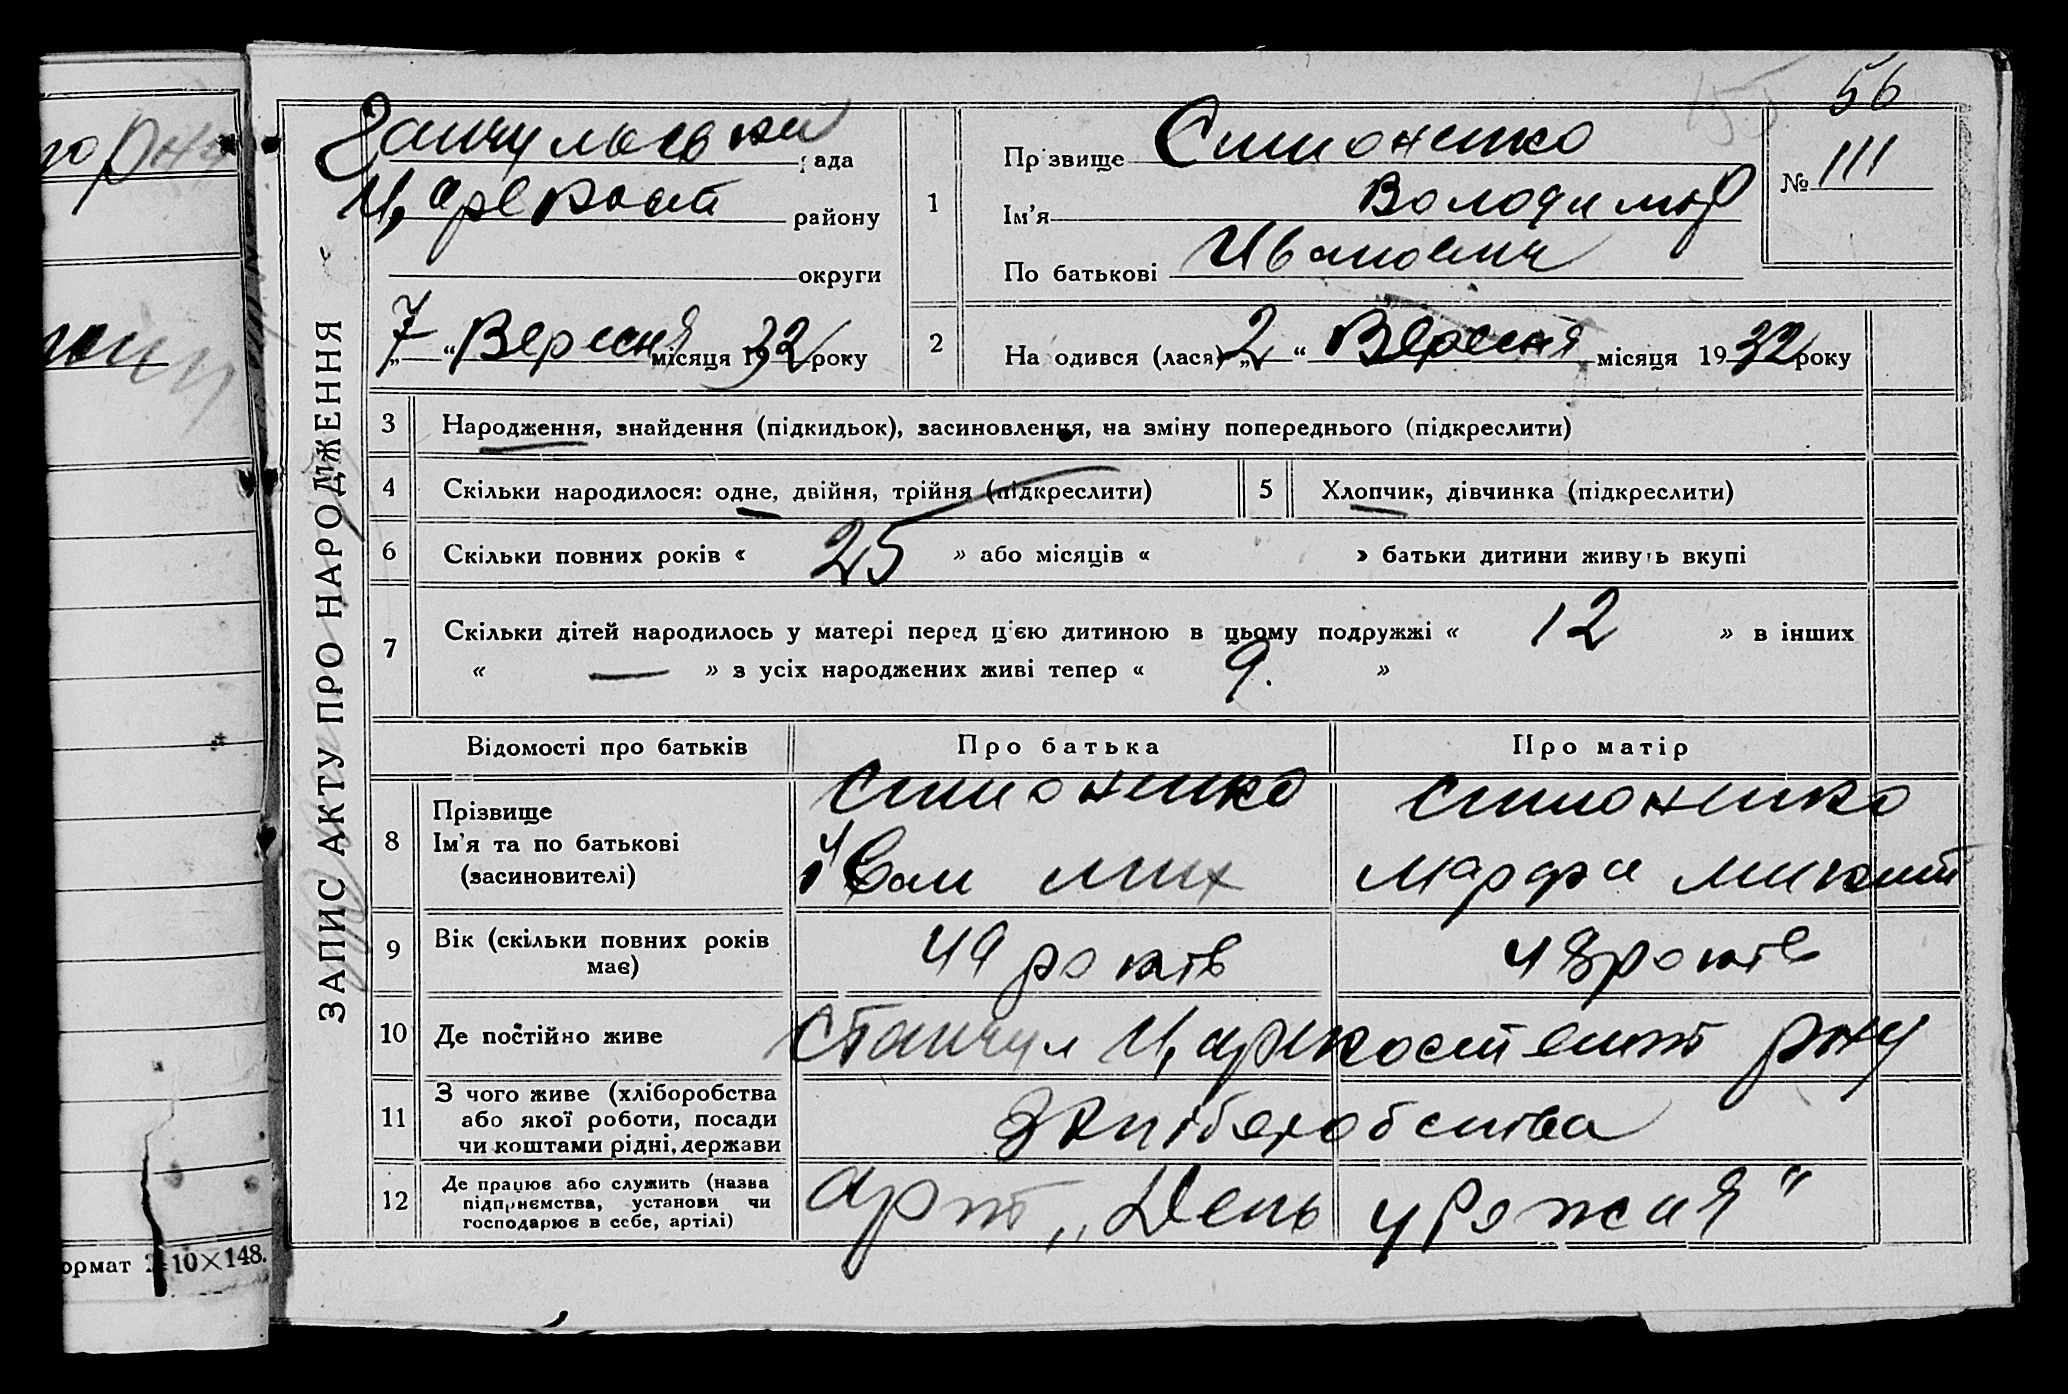 56
рада
Прізвище Симоненко
№ 111
району
1
Ім’я Володимир
округи
По батькові Иванович
„7“ Вересня місяця 1932 року
2
На одився (лася) „2“ Вересня місяця 1932 року
ЗАПИС АКТУ ПРО НАРОДЖЕННЯ
3 Народження, знайдення (підкидьок), засиновлення, на зміну попереднього (підкреслити)
4 Скільки народилося: одне, двійня, трійня (підкреслити)
5 Хлопчик, дівчинка (підкреслити)
6 Скільки повних років « 25 » або місяців « » батьки дитини живуть вкупі
7 Скільки дітей народилось у матері перед цією дитиною в цьому подружжі « 12 » в інших
« — » з усіх народжених живі тепер « 9. »
Відомості про батьків
Про батька
Про матір
8
Прізвище
Ім’я та по батькові
(засиновителі)
Симоненко
Іван Мих
Симоненко
Марфа Микит
9
Вік (скільки повних років
має)
49 років
48 років
10 Де постійно живе
р-ну
11
З чого живе (хліборобства
або якої роботи, посади
чи коштами рідні, держави
З хліборобства
12
Де працює або служить (назва
підприємства, установи чи
господарює в себе, артілі)
арт „День урожия“
ормат 210×148.